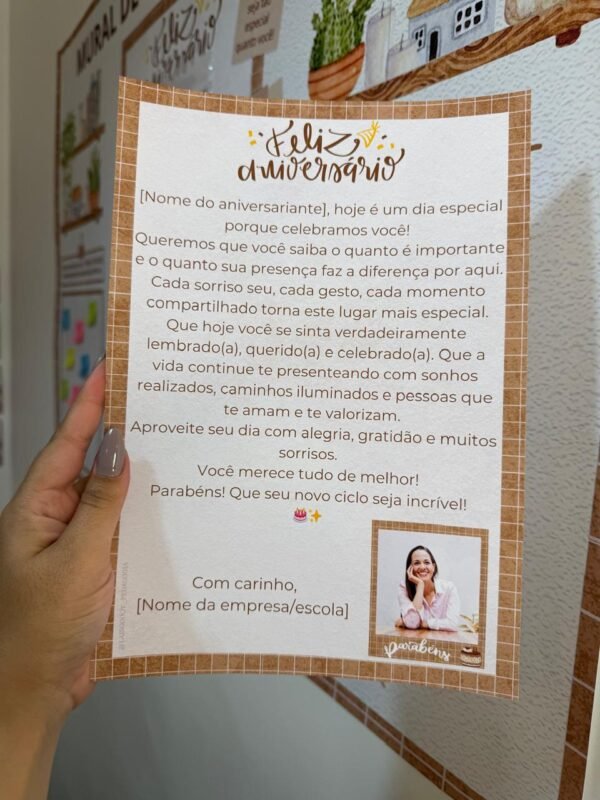 MURAL DE
Feliz
aniversário
seja tão
especial
quanto você!
Feliz
aniversário
[Nome do aniversariante], hoje é um dia especial
porque celebramos você!
Queremos que você saiba o quanto é importante
e o quanto sua presença faz a diferença por aqui.
Cada sorriso seu, cada gesto, cada momento
compartilhado torna este lugar mais especial.
Que hoje você se sinta verdadeiramente
lembrado(a), querido(a) e celebrado(a). Que a
vida continue te presenteando com sonhos
realizados, caminhos iluminados e pessoas que
te amam e te valorizam.
Aproveite seu dia com alegria, gratidão e muitos
sorrisos.
Você merece tudo de melhor!
Parabéns! Que seu novo ciclo seja incrível!
🎂✨
Com carinho,
[Nome da empresa/escola]
Parabéns